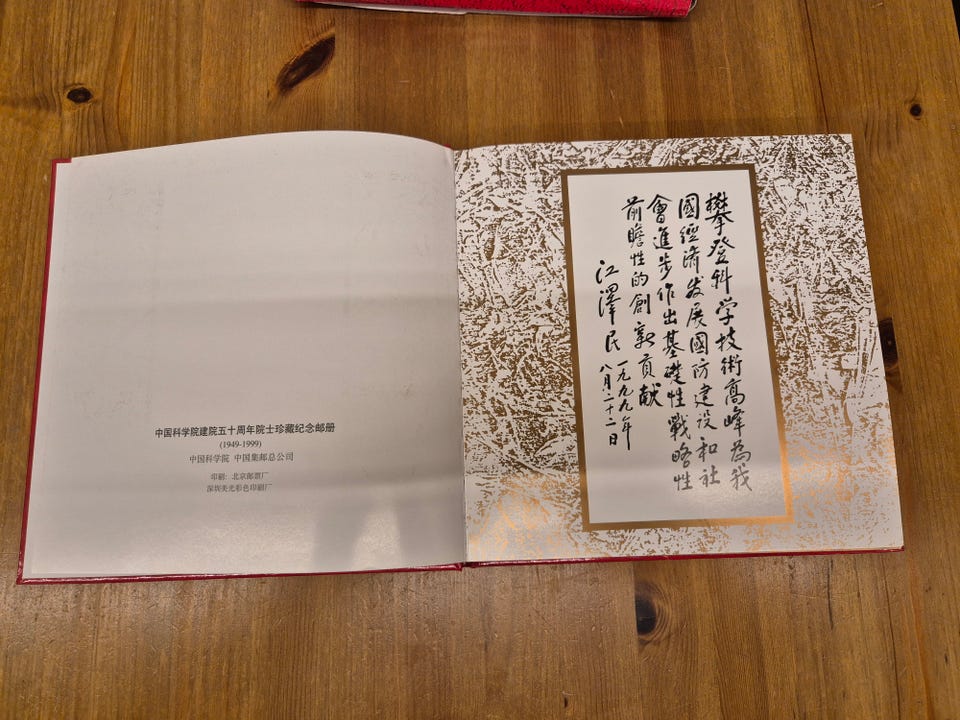 中国科学院建院五十周年院士珍藏纪念邮册
(1949-1999)
中国科学院 中国集邮总公司
印刷: 北京邮票厂
深圳美光彩色印刷厂
攀登科学技術高峰為我
國經濟发展國防建设和社
會進步作出基礎性戰略性
前瞻性的創新貢献
江澤民
一九九九年
八月二十二日